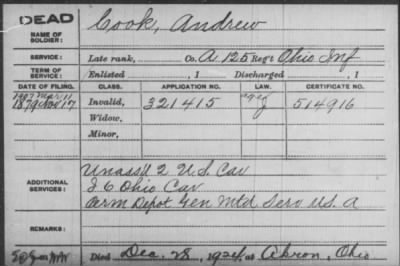 DEAD
NAME OF SOLDIER: Cook, Andrew
SERVICE: Late rank, Co. A, 125 Reg't Ohio Inf
TERM OF SERVICE: Enlisted , 1 Discharged , 1
DATE OF FILING. CLASS. APPLICATION NO. LAW. CERTIFICATE NO.
1907 Mar 11
1879 Nov 17 Invalid, 321415 J 514916
Widow,
Minor,
Unass'd 2 U.S. Cav
ADDITIONAL SERVICES: I 6 Ohio Cav
Perm Depot Gen Mtd Serv U.S. A
REMARKS:
Died Dec. 28, 1924, at Akron, Ohio